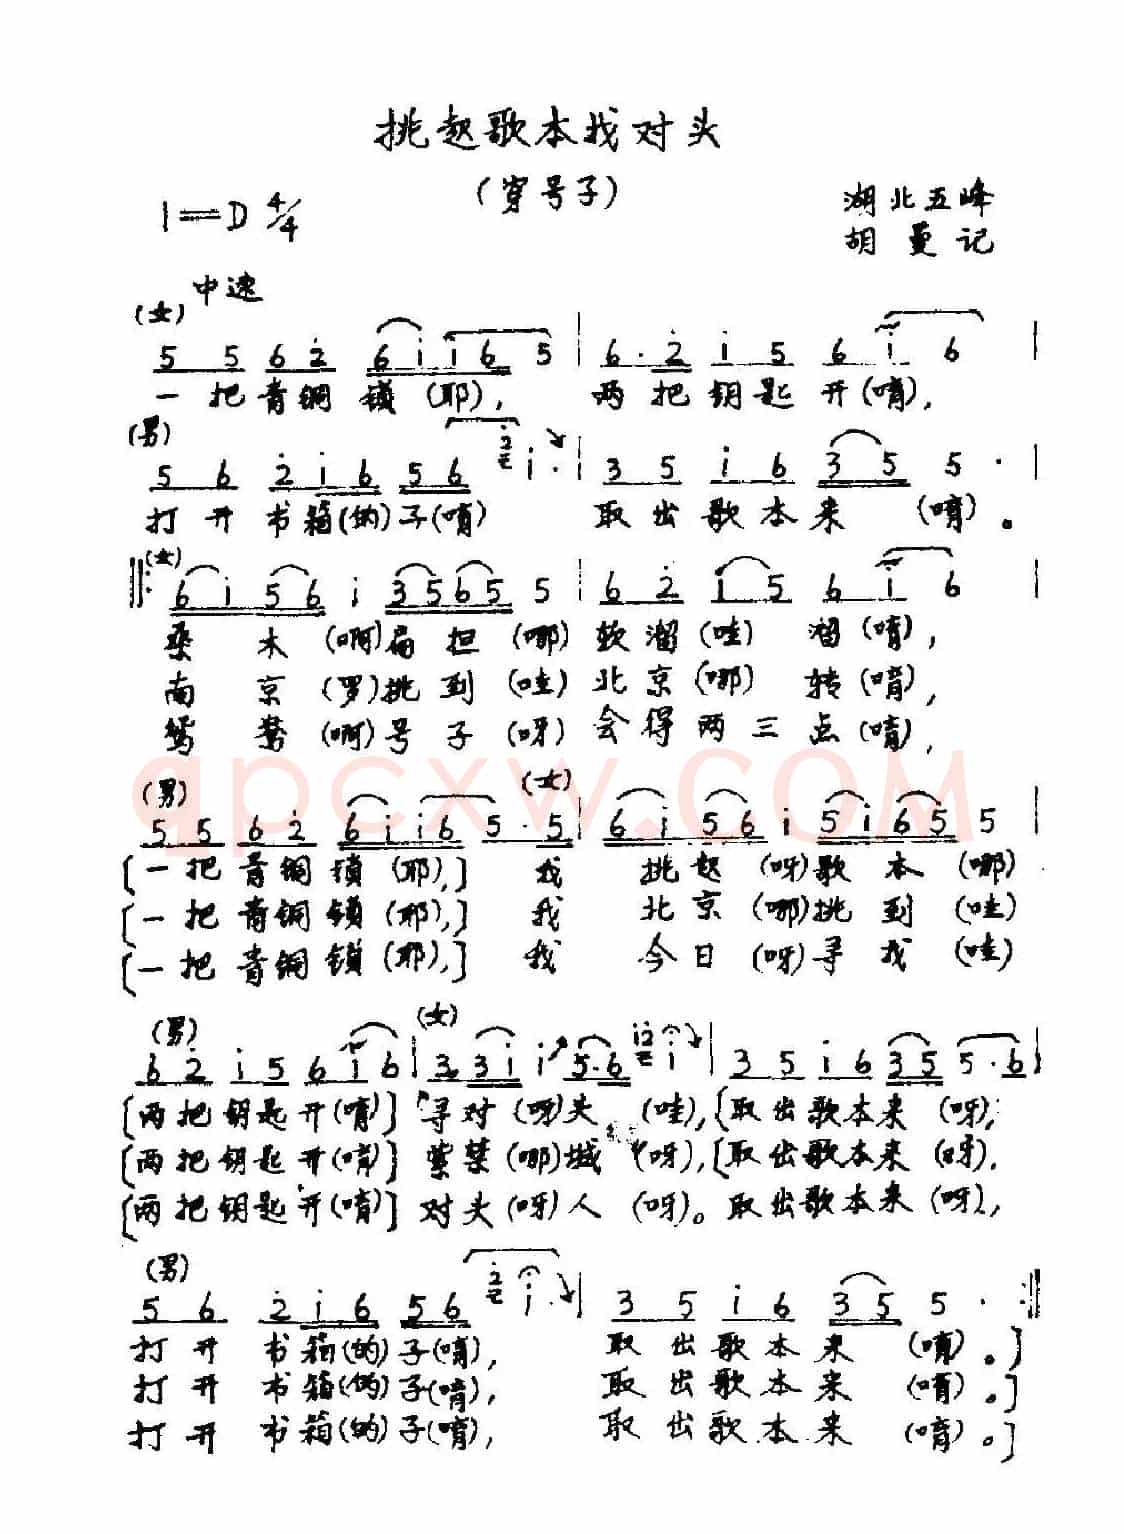 挑起歌本找对头
(穿号子)
1=D 4/4
湖北五峰
胡曼记
中速
(女)
5 5 6 2 6 i i 6 5 | 6 · 2 i 5 6 i 6 |
一把青铜锁(耶), 两把钥匙开(唷),
(男)
5 6 2 i 6 5 6 2 i · | 3 5 i 6 3 5 5 · |
打开书箱(的)子(唷) 取出歌本来(唷)。
(女)
6 i 5 6 i 3 5 6 5 5 | 6 2 i 5 6 i 6 |
桑木(啊)扁担(哪)软溜(哇)溜(唷),
南京(罗)挑到(哇)北京(哪)转(唷),
鸳鸯(啊)号子(呀)会得两三点(唷),
(男) (女)
5 5 6 2 6 i i 6 5 · 5 | 6 i 5 6 i 5 i 6 5 5 |
[一把青铜锁(耶),] 我挑起(呀)歌本(哪)
[一把青铜锁(耶),] 我北京(哪)挑到(哇)
[一把青铜锁(耶),] 我今日(呀)寻找(哇)
(男) (女)
6 2 i 5 6 i 6 | 3 3 i i 5 · 6 i 2 i | 3 5 i 6 3 5 5 · 6 |
[两把钥匙开(唷)] 寻对(呀)头(哇), [取出歌本来(呀),
[两把钥匙开(唷)] 紫禁(哪)城(呀), [取出歌本来(呀),
[两把钥匙开(唷)] 对头(呀)人(呀)。取出歌本来(呀),
(男)
5 6 2 i 6 5 6 2 i | 3 5 i 6 3 5 5 · :|
打开书箱(的)子(唷), 取出歌本来(唷)。]
打开书箱(的)子(唷), 取出歌本来(唷)。]
打开书箱(的)子(唷), 取出歌本来(唷)。]
qpcxw.COM